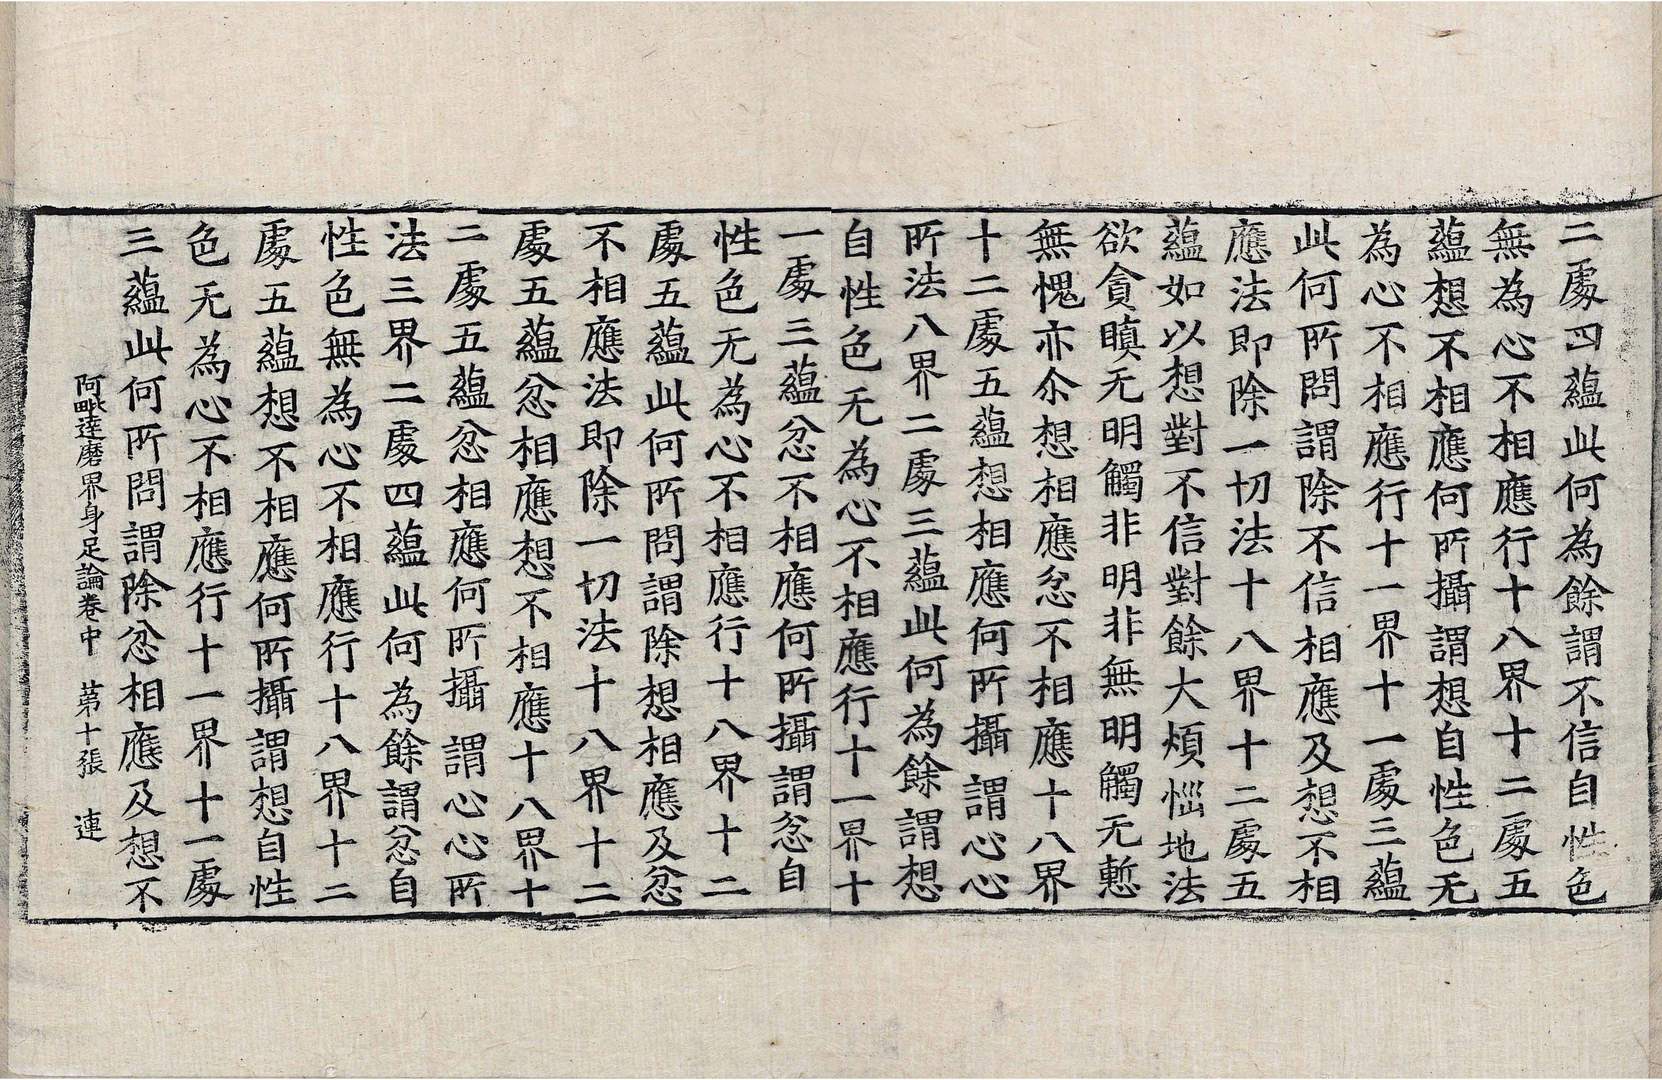 二處四蘊此何為餘謂不信自性色
無為心不相應行十八界十二處五
蘊想不相應何所攝謂想自性色无
為心不相應行十一界十一處三蘊
此何所問謂除不信相應及想不相
應法即除一切法十八界十二處五
蘊如以想對不信對餘大煩惱地法
欲貪瞋无明觸非明非無明觸无慙
無愧亦尒想相應忿不相應十八界
十二處五蘊想相應何所攝謂心心
所法八界二處三蘊此何為餘謂想
自性色无為心不相應行十一界十
一處三蘊忿不相應何所攝謂忿自
性色无為心不相應行十八界十二
處五蘊此何所問謂除想相應及忿
不相應法即除一切法十八界十二
處五蘊忿相應想不相應十八界十
二處五蘊忿相應何所攝謂心心所
法三界二處四蘊此何為餘謂忿自
性色無為心不相應行十八界十二
處五蘊想不相應何所攝謂想自性
色无為心不相應行十一界十一處
三蘊此何所問謂除忿相應及想不
阿毗達磨界身足論卷中 第十張 連